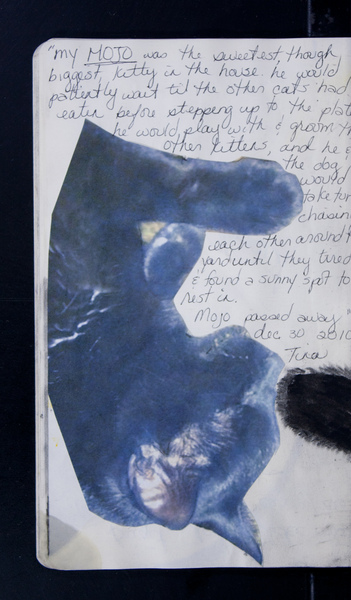 "my MOJO was the sweetest, though
biggest, kitty in the house. he would
patiently wait til the other cats had
eaten before stepping up to the plate
he would play with & groom the
other kittens, and he &
the dog
would
take tur
chasin
each other around t
yard until they tired
& found a sunny spot to
rest in.
Mojo passed away"
dec 30 2010
Tina